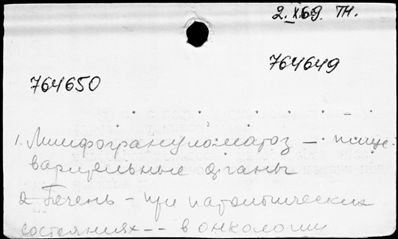 2.XI.69. ТН.
764649
764650
1. Лимфогрануломатоз – пище-
варительные органы
2. Печень – при патологических
состояниях -- в онкологии